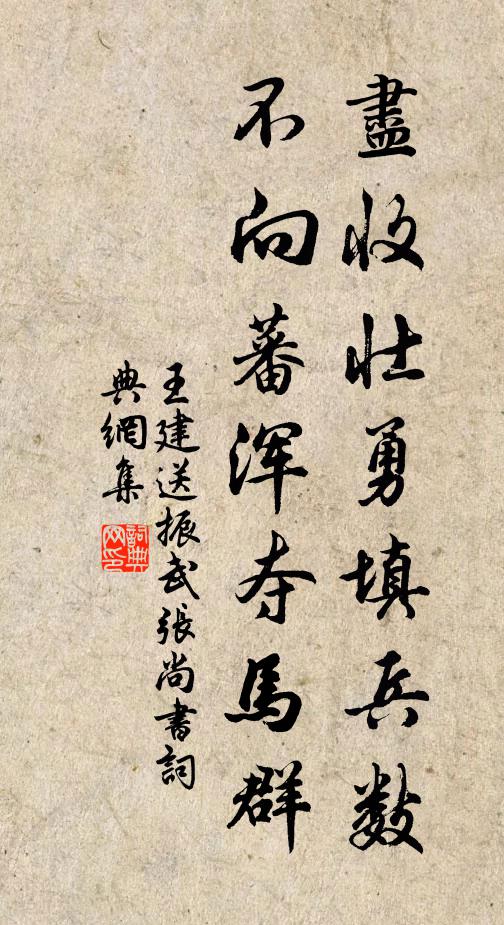 盡收壯勇填兵數
不向蕃浑夺馬群
王建送振武張尚書詞
典網集
詞典網印